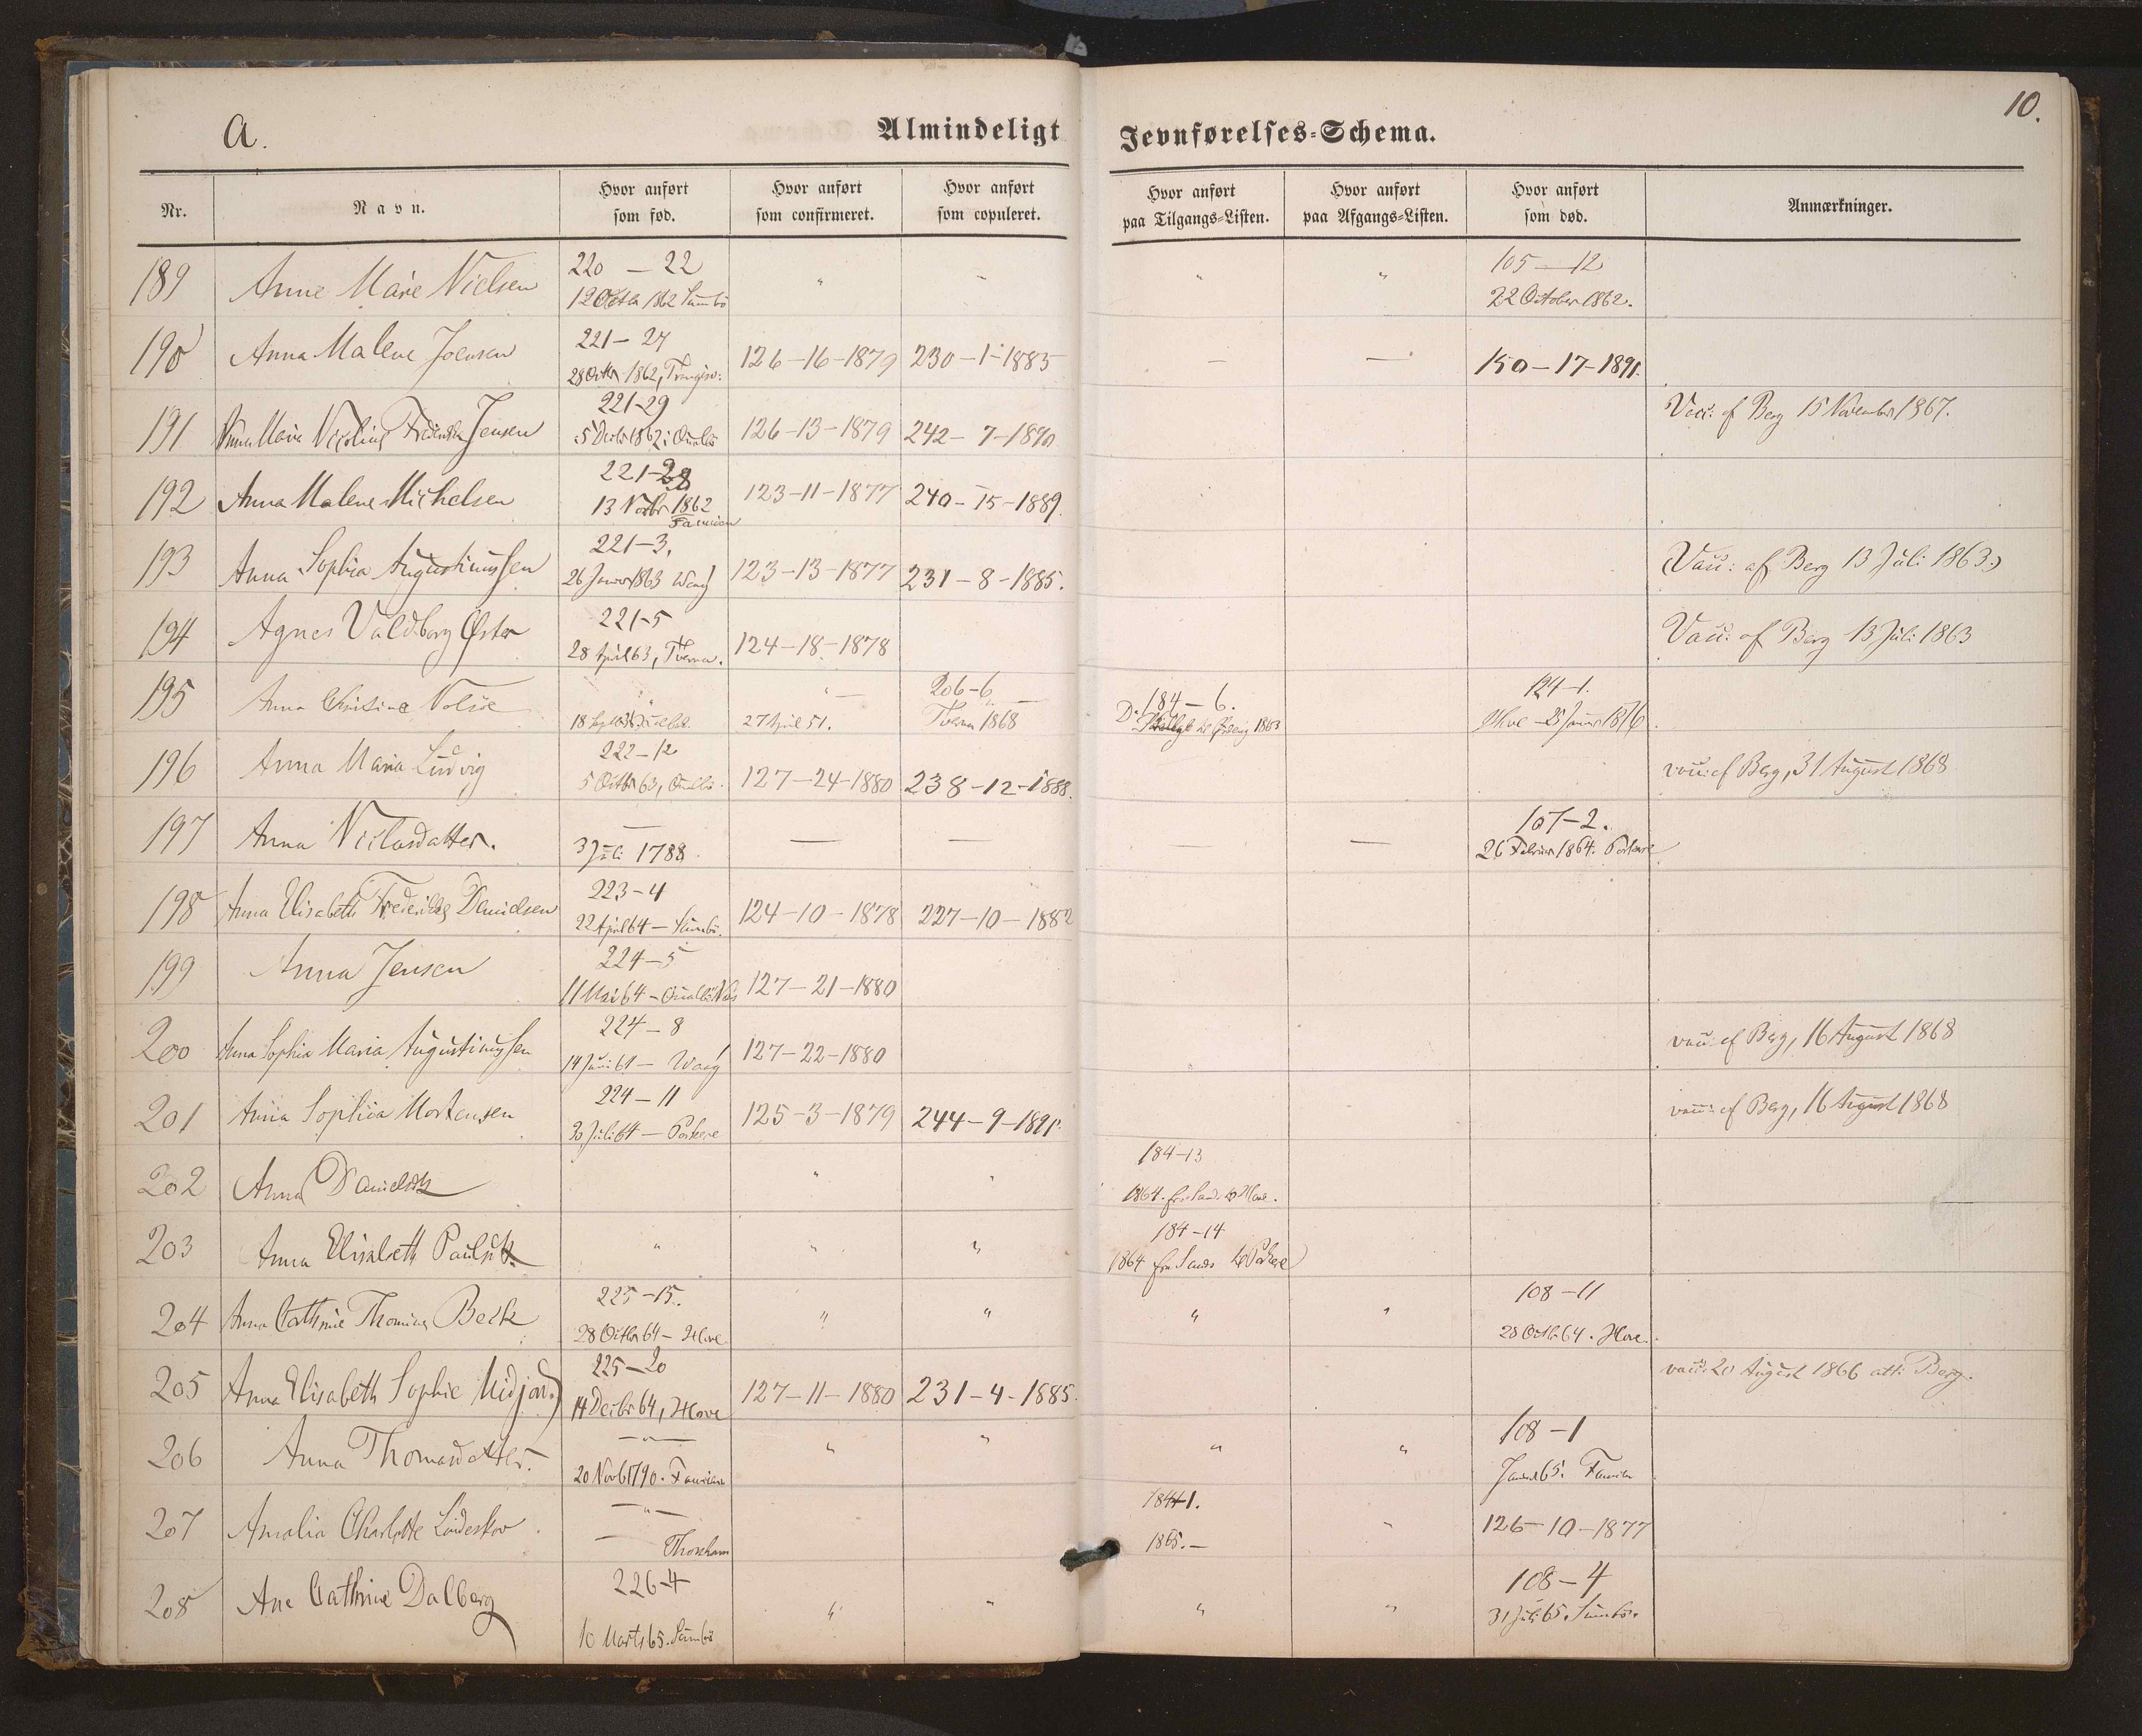 A.
Almindeligt Jevnførelses-Schema.
10.
Nr.
Navn.
Hvor anført som fød.
Hvor anført som confirmeret.
Hvor anført som copuleret.
Hvor anført paa Tilgangs-Listen.
Hvor anført paa Afgangs-Listen.
Hvor anført som død.
Anmærkninger.
189 Anne Marie Nielsen 220 — 22 " " " " 105 — 12
12 Octbr 1862 Sumbö 22 October 1862.
190 Anna Malene Joensen 221 — 27 126-16-1879 230-1-1883 — — 150-17-1891.
28 Octbr 1862,
191 Anna Marie Frederikke Jensen 221-29 126-13-1879 242-7-1890 Vacc: af Berg 15 November 1867.
5 Decbr 1862; Qualbö
192 Anna Malene Michelsen 221-28 123-11-1877 240-15-1889.
13 Novbr 1862
Famien
193 Anna Sophia Augustinussen 221-3. 123-13-1877 231-8-1885. Vacc: af Berg 13 Juli 1863.
26 Januar 1863 Waag
194 Agnes Valdborg Øster 221-5 124-18-1878 Vacc: af Berg 13 Juli 1863
28 April 63, Tveraa.
195 Anna Christine 206-6 184-6. 124-1.
27 April 51. Tveraa 1868 1863 1876
196 Anna Maria Ludvig 222-12 127-24-1880 238-12-1888. vacc: af Berg, 31 August 1868
5 Octbr 63, Qualbö
197 Anna Nielsdatter. — — — — — 107-2.
3 Juli 1788. 26 Februar 1864. Porkere
198 Anna Elisabeth Frederikke Danielsen 223-4 124-10-1878 227-10-1882
22 April 64 — Sumbö.
199 Anna Jensen 224-5 127-21-1880
11 Mai 64 - Qualbö
200 Anna Sophia Maria Augustinussen 224-8 127-22-1880 vacc: af Berg, 16 August 1868
14 Juni 64 — Waag
201 Anna Sophia Mortensen 224-11 125-3-1879 244-9-1891. vacc: af Berg, 16 August 1868
30 Juli 64 — Porkere
202 Anna Danielsdtr " " 184-13
1864. fra Sand til Hove.
203 Anna Elisabeth Paulsdtr. " " " 184-14
1864 fra Sand til Porkere
204 Anna Cathrine Thomine Beck 225-15. " " " " 108-11
28 Octbr 64 - Hove 28 Octbr 64. Hove.
205 Anna Elisabeth Sophie Midjord 225-20 127-11-1880 231-4-1885. vacc: 20 August 1866 att: Berg.
14 Decbr 64, Hove
206 Anna Thomasdatter. — " — " " " " 108-1
20 Novb 1790. Famien Januar 65. Famien
207 Amalia Charlotte Lindeskov — " — 184-1. " 126-10-1877
— Thorshavn 1865. —
208 Ane Cathrine Dalberg 226-4 " " " " 108-4
10 Marts 65. Sumbö 31 Juli 65. Sumbö.